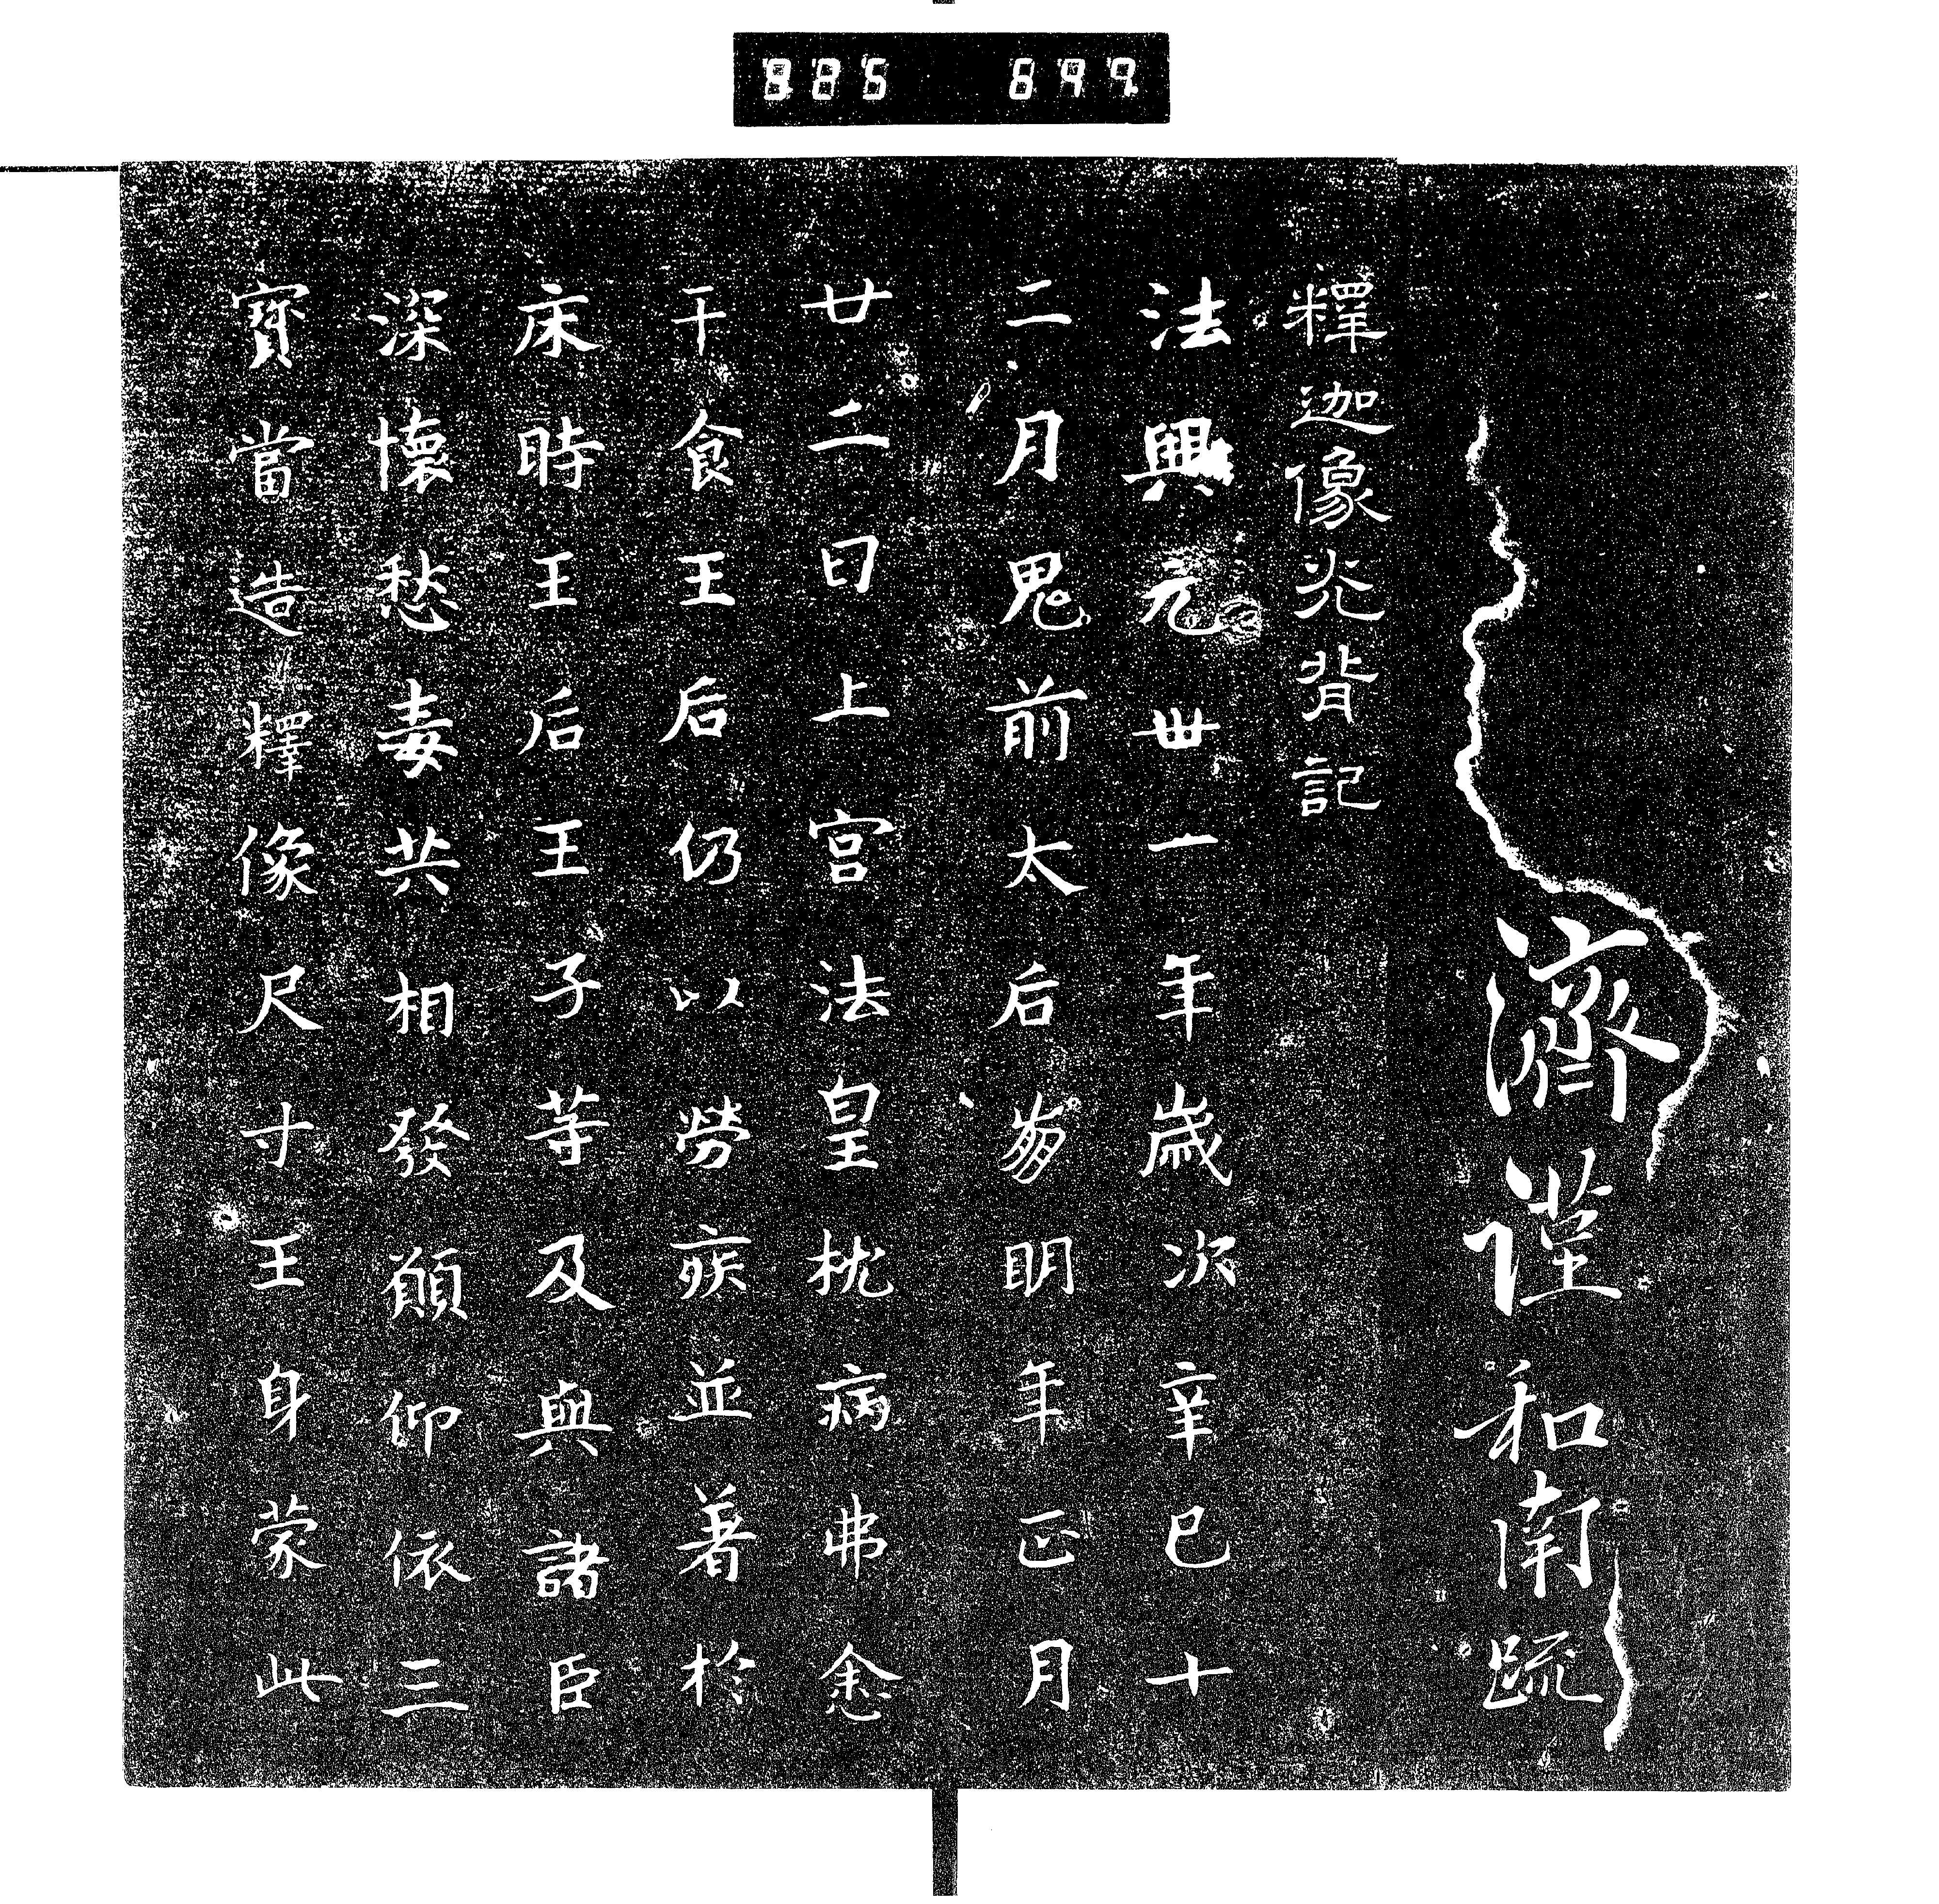 825 699
濟謹和南疏
釋迦像光背記
法興元卅一年歲次辛巳十
二月鬼前太后崩明年正月
廿二日上宮法皇枕病弗悆
干食王后仍以勞疾並著於
床時王后王子等及與諸臣
深懷愁毒共相發願仰依三
寳當造釋像尺寸王身蒙此